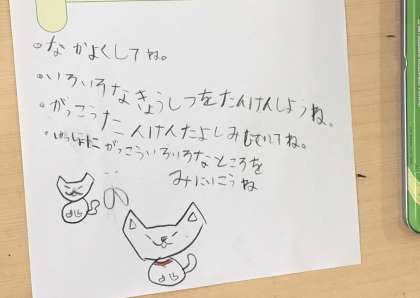 ○なかよくしてね。
○いろいろなきょうしつをたんけんしようね。
○がっこうたんけんたのしみにしていてね。
○いっしょにがっこういろいろなところを
みにいこうね